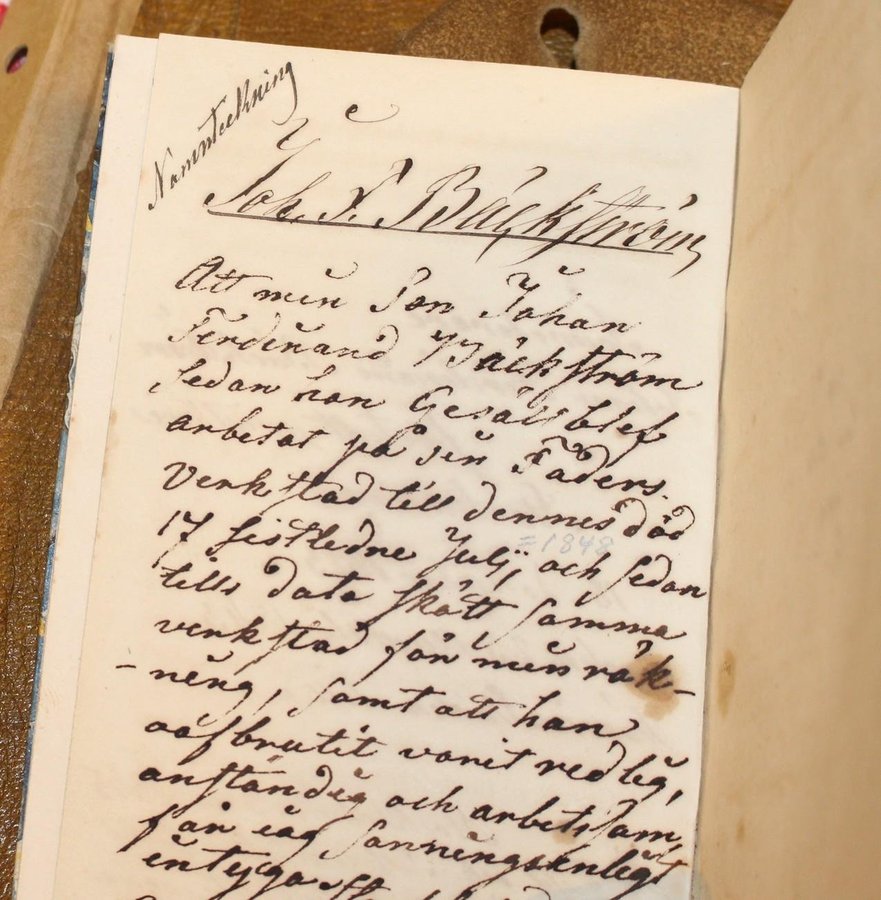 Namnteckning
Joh. F. Bäckström
Att min Son Johan
Ferdinand Bäckström
sedan han Gesäll blef
arbetat på sin Faders
Verkstad till dennes död
17 sistledne Julij, och sedan
=1848
tills dato skött samma
verkstad för min räk-
-ning, samt att han
oafbrutit varit redlig,
anständig och arbetsam,
får jag sanningsenligt
intyga